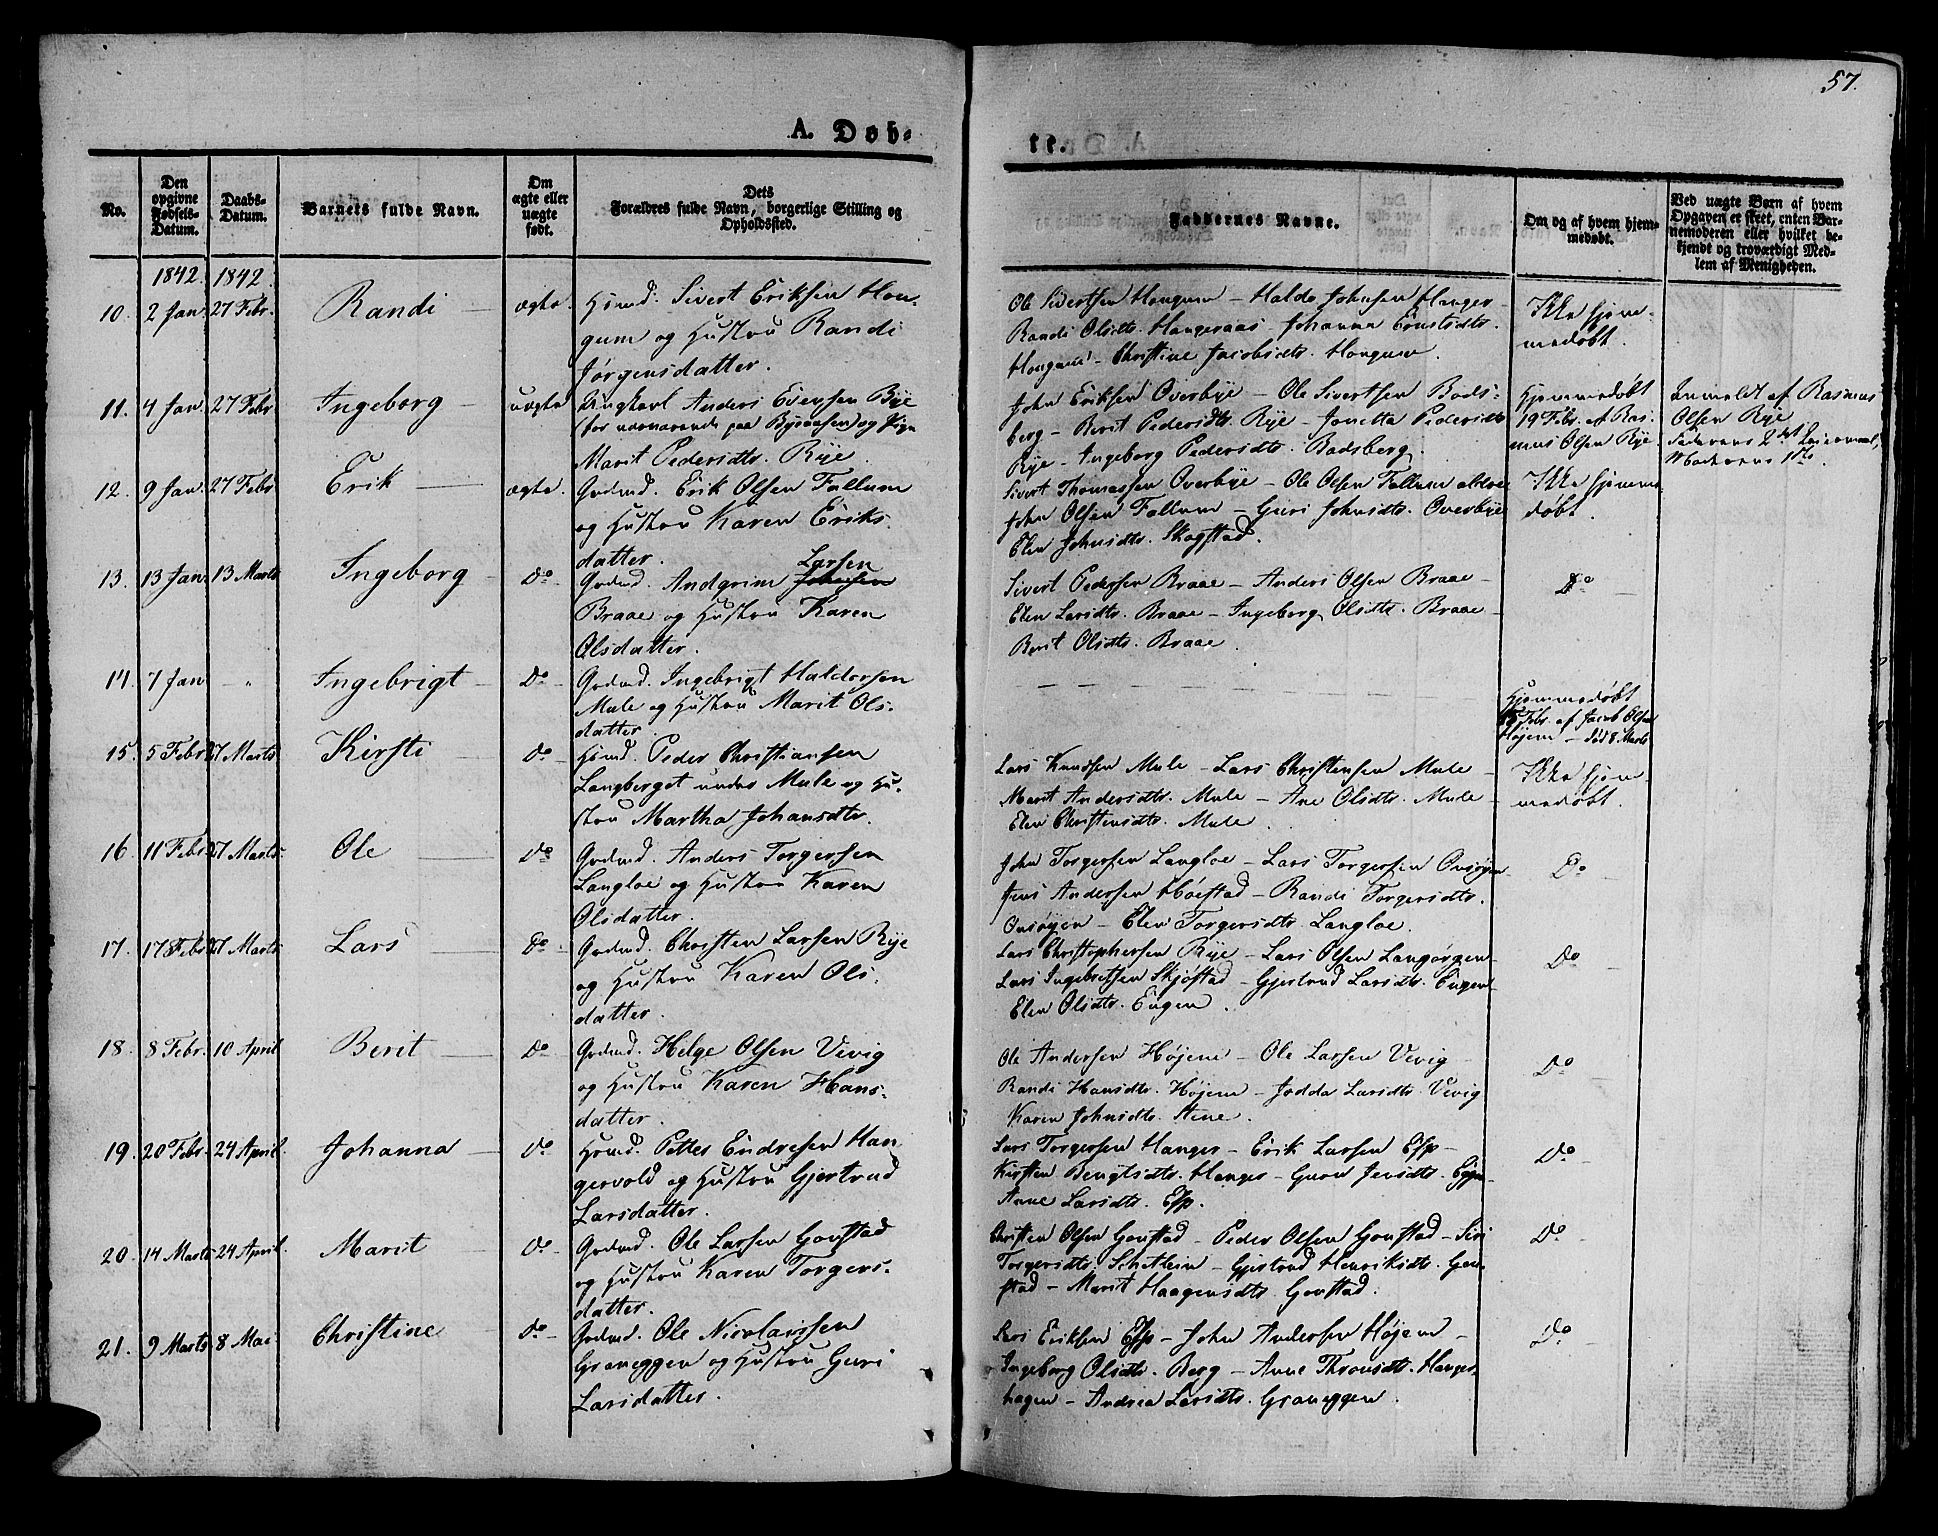 57.
A. Døb-
te.
No.
Den opgivne Fødsels-Datum.
Daabs-Datum.
Barnets fulde Navn.
Om ægte eller uægte født.
Dets Forældres fulde Navn, borgerlige Stilling og Opholdssted.
Faddernes Navne.
Om og af hvem hjemmedøbt.
Ved uægte Børn af hvem Opgaven er skeet, enten Barnemoderen eller hvilket bekjendt og troværdigt Medlem af Menigheden.
1842. 1842.
10. 2 Jan. 27 Febr. Randi ægte. Huusmd. Sivert Eriksen Hon-
gum og Hustru Randi
Jørgensdatter.
Ole Sivertsen Hongum - Haldo Johnsen Hanger -
Randi Olsdtr. Hangeraas - Johanna
Hongum - Christine Jacobsdtr. Hongum.
Ikke hjem-
medøbt.
11. 4 Jan. 27 Febr Ingeborg uægte Ungkarl Anders Evensen Bye
(for nærværende paa Byaasen) og Pige
Marit Pedersdtr. Rye.
John Eriksen Overbye - Ole Sivertsen Bods-
berg - Berit Pedersdtr Rye - Jonetta Pedersdtr
Rye - Ingeborg Pedersdtr. Bodsberg.
Hjemmedøbt
19 Febr. af Ras-
mus Olsen Rye
Anmeldt af Rasmus
Olsen Rye
Faderens 2det Leiermaal,
Moderens 1ste.
12. 9 Jan. 27 Febr Erik ægte. Gaardmd. Erik Olsen Fallum
og Hustru Karen Eriks-
datter.
Sivert Thomassen Overbye - Ole Olsen Fallum
John Olsen Fallum - Guri Johnsdtr. Overbye
Elen Johnsdtr. Skogstad.
Ikke hjemme-
døbt.
13. 13 Jan. 13 Marts Ingeborg Do Gaardmd. Andgrim Johnsen Larsen
Braae og Hustru Karen
Olsdatter.
Sivert Pedersen Braae - Anders Olsen Braae -
Elen Larsdtr. Braae - Ingeborg Olsdtr. Braae -
Berit Olsdtr. Braae.
Do
14. 7 Jan - " Ingebrigt Do Gaardmd. Ingebrigt Haldorsen
Mule og Hustru Marit Ols-
datter.
Hjemmedøbt
Febr. af Jacob Olsen
Højem - død 8 Marts
15. 5 Febr. 27 Marts Kirsti Do Huusmd. Peder Christiansen
Langberget under Mule og Hu-
stru Martha Johansdtr.
Lars Knudsen Mule - Lars Christensen Mule -
Marit Andersdtr. Mule - Ane Olsdtr. Mule -
Elen Christensdtr. Mule.
Ikke hjem-
medøbt.
16. 11 Febr. 27 Marts. Ole Do Gaardmd. Anders Torgersen
Langloe og Hustru Karen
Olsdatter.
John Torgersen Langloe - Lars Torgersen Onsøyen
Jens Andersen Høistad - Randi Torgersdtr.
Onsøyen - Elen Torgersdtr Langloe.
Do
17. 17 Febr 27 Marts Lars Do Gaardmd. Christen Larsen Rye
og Hustru Karen Ols-
datter.
Lars Christophersen Rye - Lars Olsen Langørgen -
Lars Ingebretsen Skjøstad - Gjertrud Larsdtr. Engen -
Elen Olsdtr. Engen.
Do
18. 8 Febr. 10 April Berit Do Gaardmd. Helge Olsen Vevig
og Hustru Karen Hans-
datter.
Ole Andersen Højem - Ole Larsen Vevig -
Randi Hansdtr. Højem - Jodda Larsdtr. Vevig
Karen Johnsdtr. Stene.
Do
19. 20 Febr. 24 April. Johanna Do Huusmd. Petter Endresen Han-
gervold og Hustru Gjertrud
Larsdatter.
Lars Torgersen Hanger - Erik Larsen Esp -
Kirsten Bengtsdtr. Hanger - Guru Jensdtr.
Anne Larsdtr. Esp.
Do
20. 14 Marts 24 April. Marit Do Gaardmd. Ole Larsen Goustad
og Hustru Karen Torgers-
datter.
Christen Olsen Goustad - Peder Olsen Goustad - Siri
Torgersdtr. - Gjertrud Henriksdtr. Gou-
stad - Marit Haagensdtr. Goustad.
Do
21. 9 Marts 8 Mai Christine Do Gaardmd. Ole Nicolaissen
Graneggen og Hustru Guri
Larsdatter.
Lars Eriksen Esp - John Andersen Højem -
Ingeborg Olsdtr. Berg - Anne Thronsdtr. Hanger-
hagen - Andrea Larsdtr. Graneggen.
Do